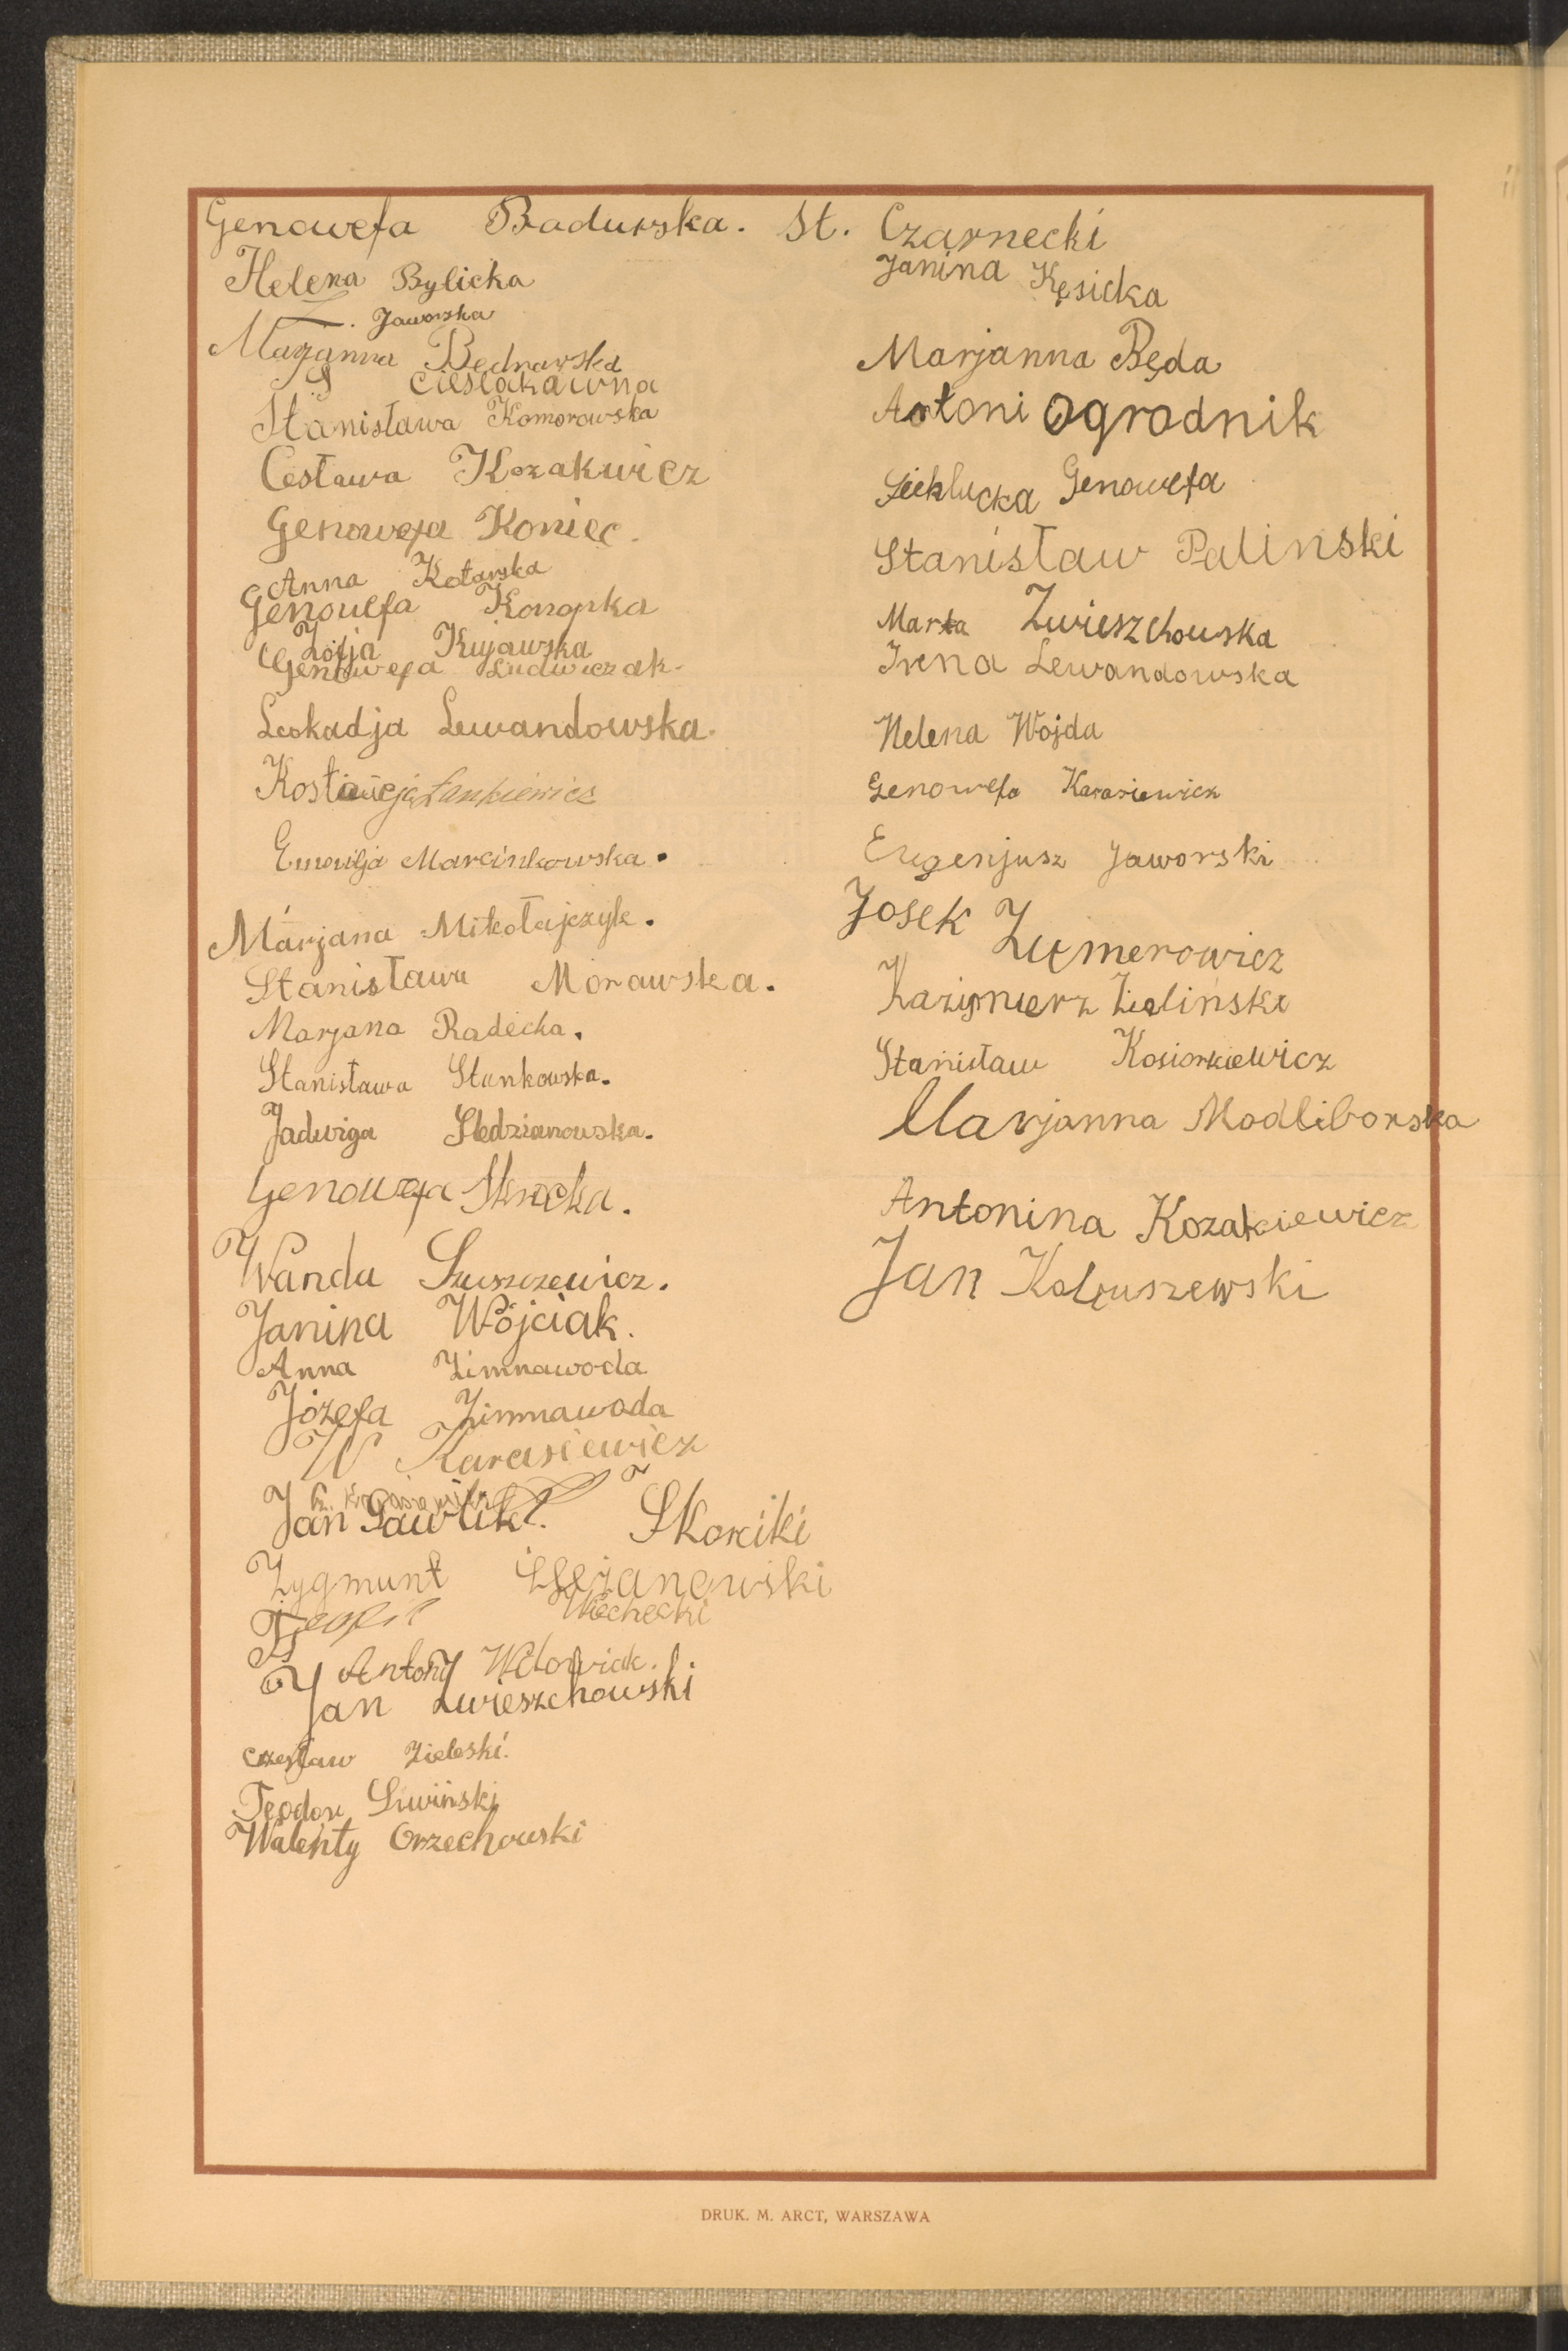 Genowefa Badurska.
Helena Bylicka
Z. Jaworska
Marjanna Bednarska
S Cieślakówna
Stanisława Komorowska
Cesława Kozakwicz
Genowefa Koniec.
Anna Kotarska
Genowefa Konopka
Zofja Kujawska
Genowefa Ludwiczak.
Leokadja Lewandowska.
Łankiewicz
Emilja Marcinkowska.
Marjana Mikołajczyk.
Stanisława Morawska.
Marjana Radecka.
Stanisława Stankowska.
Jadwiga Śledzianowska.
Genowefa
Wanda Szuszczewicz.
Janina Wójciak.
Anna Zimnawoda
Józefa Zimnawoda
W Karasiewicz
Jan Pawlik
Skorciki
Zygmunt
Teofil Wiechecki
Antony
Jan Zwieszchowski
Czesław Zieleski.
Teodor Liwiński
Walenty Orzechowski
St. Czarnecki
Janina Kęsicka
Marjanna Będa
Antoni Ogrodnik
Genowefa
Stanisław Palinski
Marta Zwieszchowska
Irena Lewandowska
Helena Wojda
Genowefa Karasiewicz
Eugenjusz Jaworski
Josek Zumerowicz
Kazimierz Zieliński
Stanisław Kosiorkiewicz
Marjanna Modliborska
Antonina Kozakiewicz
Jan Kałuszewski
DRUK. M. ARCT, WARSZAWA